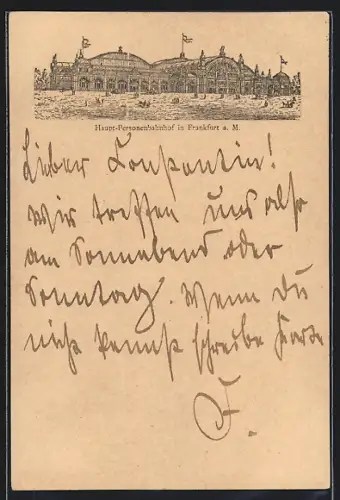 Haupt-Personenbahnhof in Frankfurt a. M.
Lieber Constantin!
Wir treffen uns also
am Sonnabend oder
Sonntag. Wenn Du
nicht kannst schreibe Karte
F.